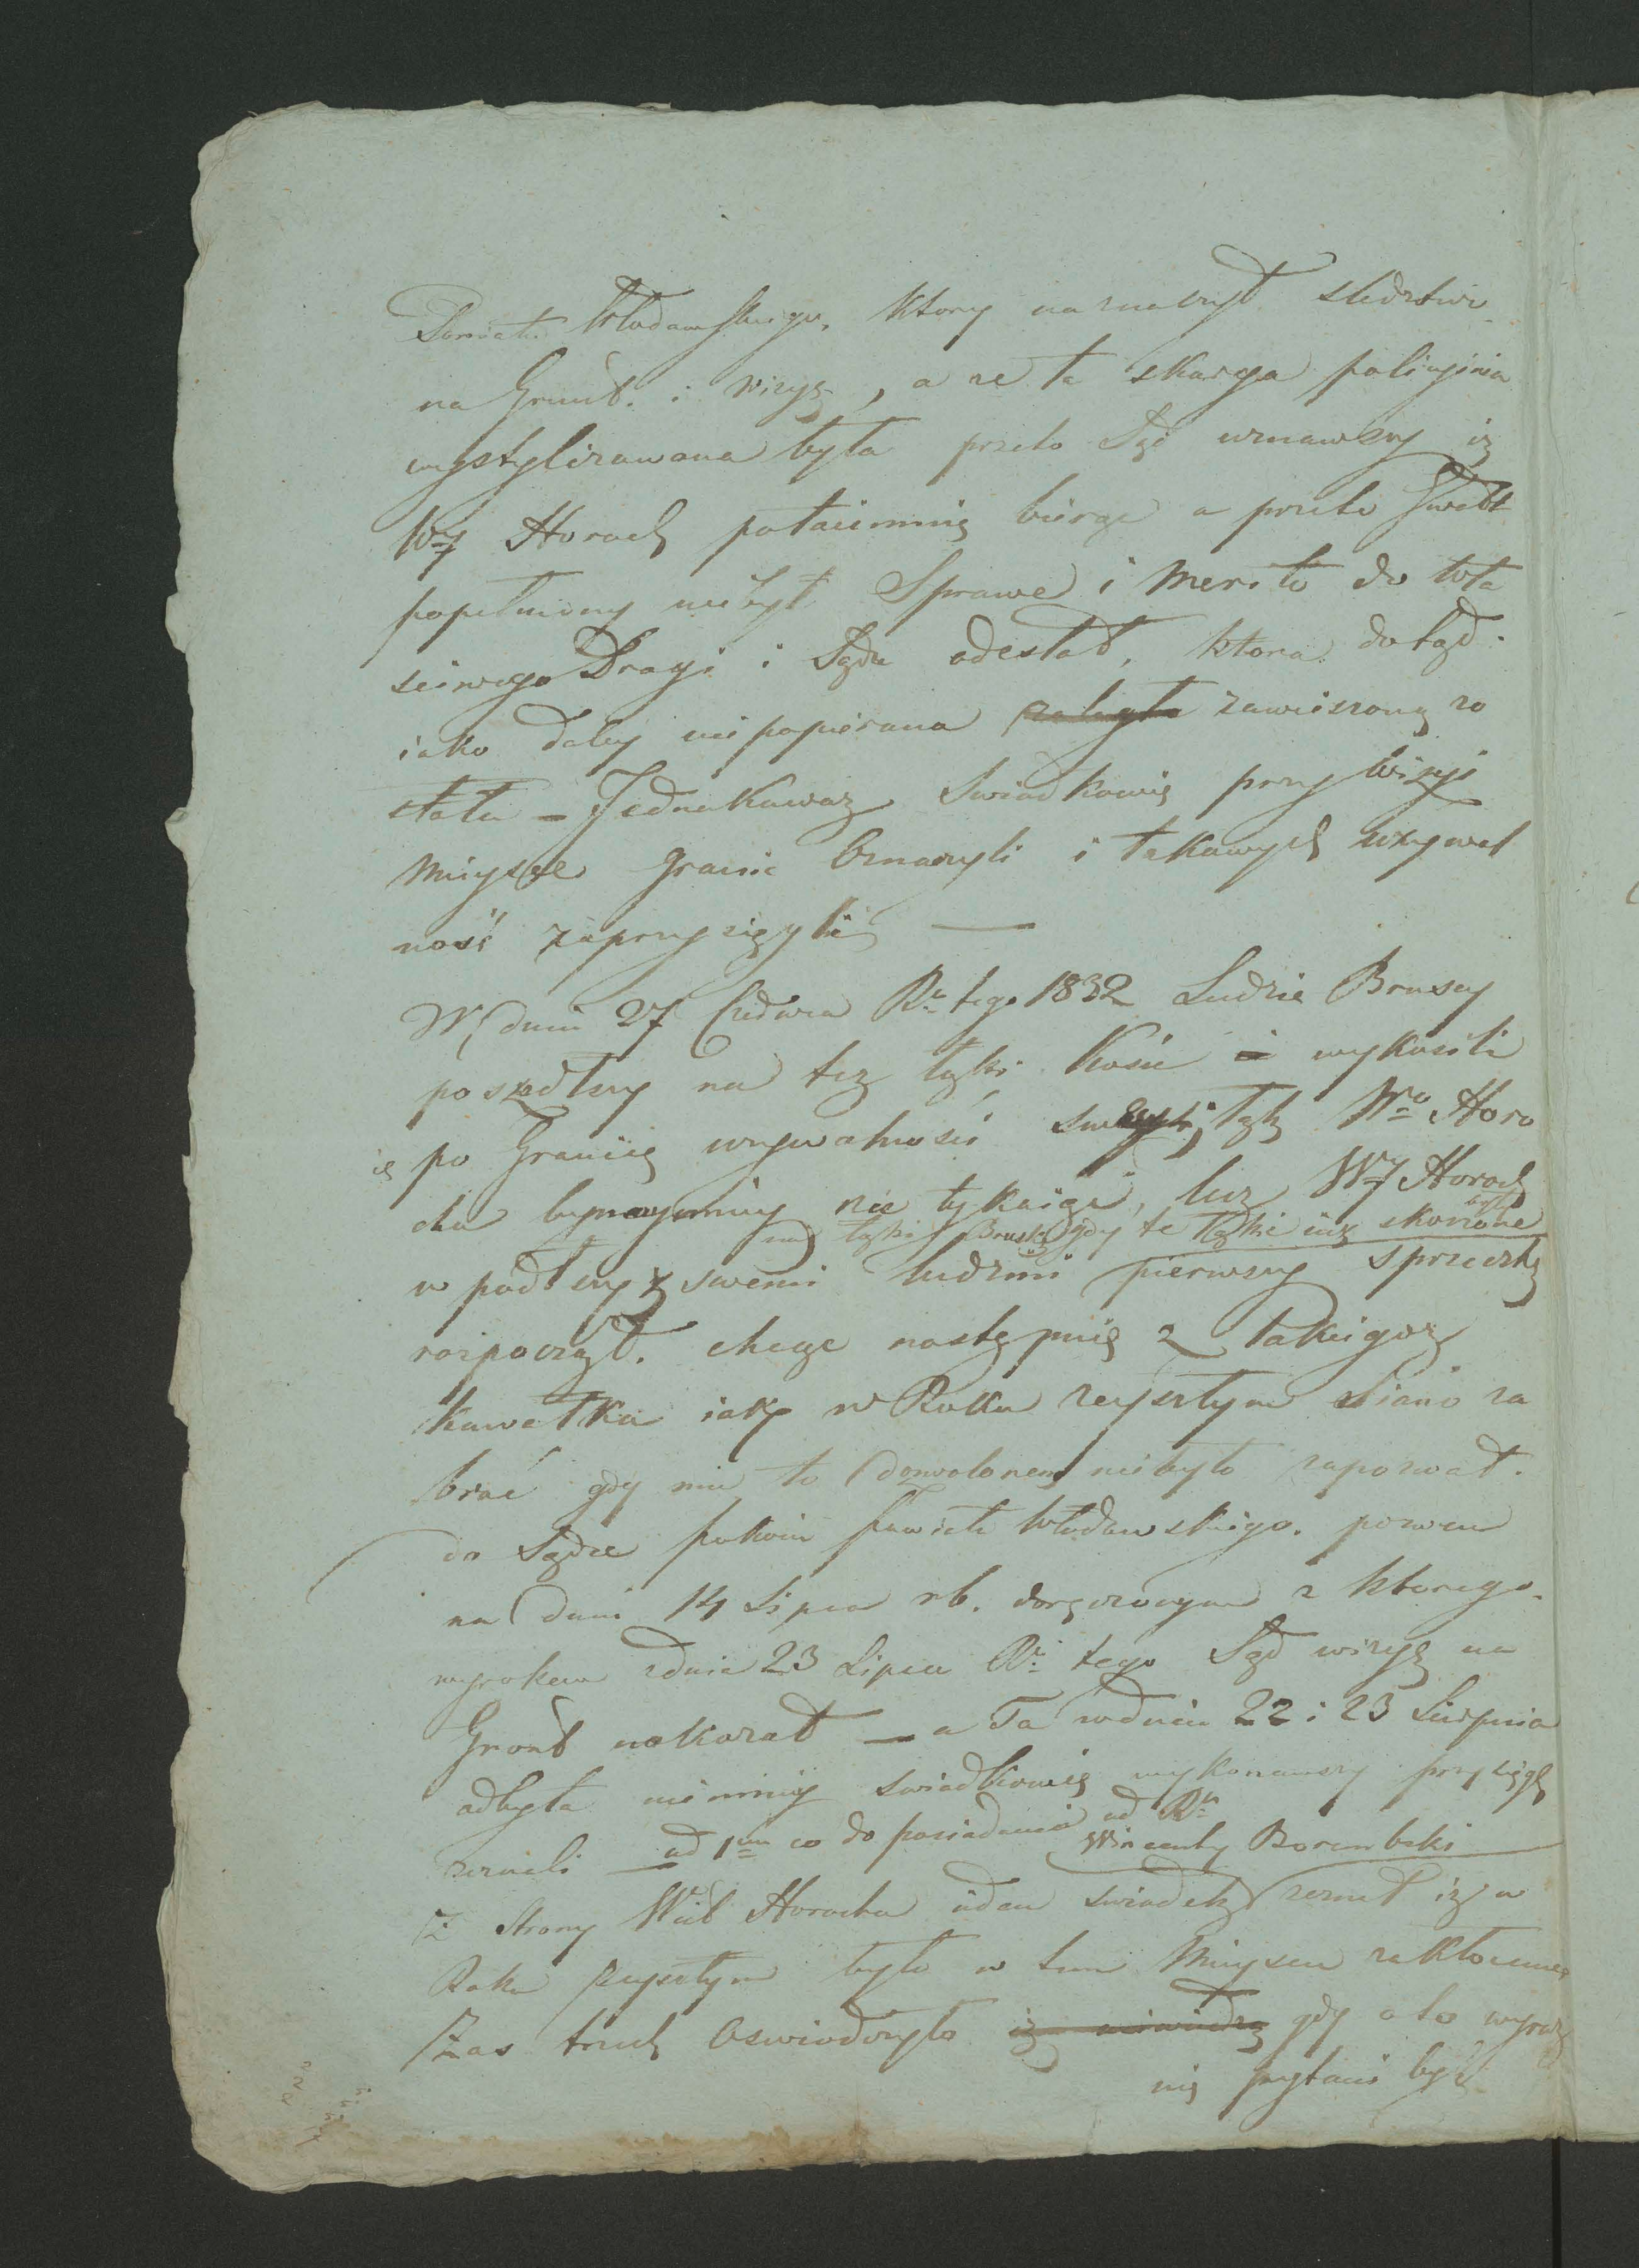 Powiatu Włodawskiego, ktory naznaczył sledztwo
na Grunt. i wizyą, a ze ta skarga policyjnia
wystylizowana była przeto Sąd uznawszy iz
WJ Horoch potaiemnie biorąc a przeto Gwałt
popełniony niebył Sprawe i Merito do wła
sciwego Drogi i Sądu odesłał, ktora dotąd
iako daley niepopierana zaległa zawieszoną zo
stała – Jednakowoz Swiadkowie przy wizyi
mieysce Granic Oznaczyli i takowych uzywal
ność zaprzysięgli —
W dniu 27 Czerwca Rku tego 1832 Ludzie Brusscy
poszedłszy na tez łąki Kosić i wykosili
po Granice uzywalnosci swoiey, łąk Wo Horo
cha bynaymniey nie tykaiąc, lecz WJ Horoch
na łąki Bruskie gdy te łąki iuz skoszone były
wpadłszy z swemi ludzmi pierwszy sprzeczkę
rozpoczął. chcąc następnie z takiegoz
kawałka iak w Roku zeyszłym Siano za
brać gdy mu to dozwolonem niebyło zapozwał.
do Sądu pokoiu Powiatu Włodawskiego. pozwem
na dniu 14 Lipca rb. doręczonym z ktorego
wyrokem zdnia 23 Lipca Rku tego Sąd wizyę na
Grunt nakazał — a Ta wdniu 22 i 23 Sierpnia
odbyta niemniey swiadkowie wykonawszy przysięgę
zeznali — ad 1um co do posiadania od Rku
Wincenty Borembski
Z Strony Wiel Horocha iden swiadek zeznał iz w
Roku zeyszłym było w tem Mieyscu zakłocenie
Zas trzech Oswiadczyło iz niewiedzą gdy o to wyraz
nie pytani byli